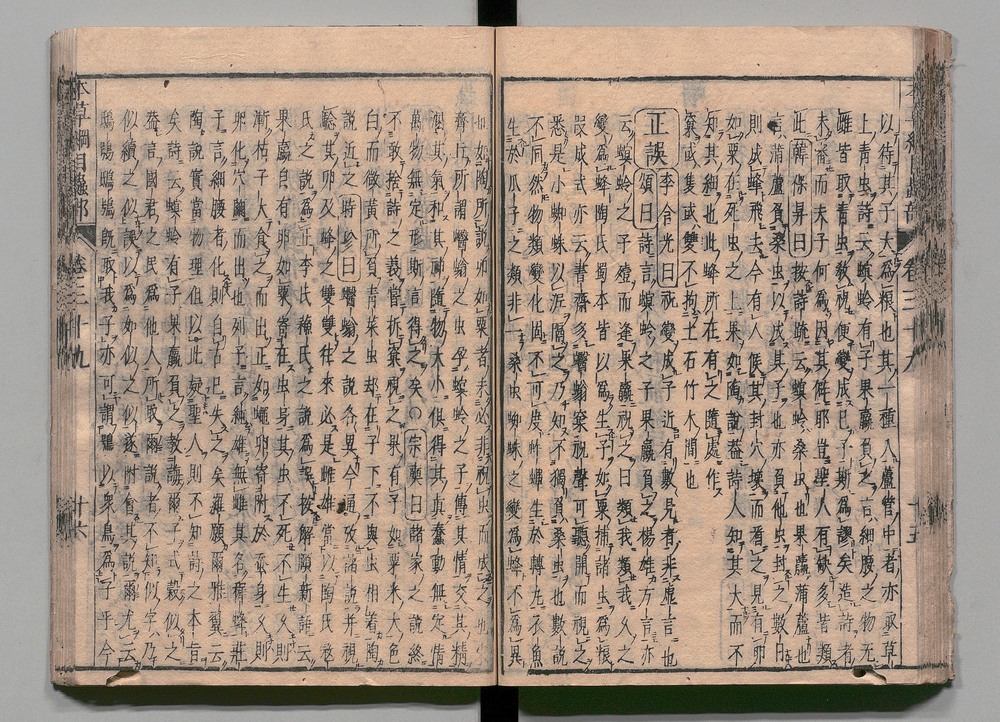 以待其子大爲根也其一種入蘆管中者亦取草
上青虫也詩云螟蛉有子果蠃負之言細腰之物无
雌皆取青虫敎祝便變成已子斯爲謬矣造詩者
未審而夫子何爲因其僻耶豈聖人有缺多皆類
此韓保昇曰按詩疏云螟蛉桑虫也果蠃蒲蘆也
言蒲蘆負桑虫以成其子也亦負他虫封之數日
則成蜂飛去今有人候其封穴壞而看之見有卵
如粟在死虫之上果如陶說蓋詩人知其大而不
知其細也此蜂所在有之隨處作
窠或隻或雙不拘土石竹木間也
正誤李含光曰祝變成子近有數見者非虛言也
頌曰詩言螟蛉之子果蠃負之楊雄方言亦
云螟蛉之子殪而逢果蠃祝之曰類我類我久之
變爲蜂陶氏蜀本皆以爲生子如粟捕諸虫爲粮
段成式亦云書齋多蠮螉窠祝聲可聽開而
是小蜘蛛以泥隔之乃知不獨負桑虫也數說
不同然物類變化固不可度蚱蟬生於轉丸衣魚
生於瓜子之類非一桑虫蜘蛛之變爲蜂不爲異
也如陶所說卵如粟者未必非祝虫而成之也
齊丘所謂蠮螉之虫孕螟蛉之子傳其情交其精
混其氣和其神隨物大小俱得其真蠢動無定情
萬物無定形斯言得之矣宗奭曰諸家之說終
不敢捨詩之義嘗拆窠視之果有子如粟米大色
白而微黃所負青菜虫却在子下不與虫相着陶
說近之時珍曰蠮螉之說各異今通攷諸說并視
驗其卵及蜂之雙雙往來必是雌雄當以陶氏
氏之說爲正李氏氏之說爲誤按解願新語云
果蠃自有卵如粟寄在虫身其虫不死不生久則
漸枯子大食之而出正如蠅卵寄附於蚕身久則
卵化穴繭而出也列子言純雄無雌其名穉蜂莊
子言細腰者化則自古已失之矣羅願爾雅翼云
陶說實當物理但以此疑聖人則不知詩之本旨
矣詩云螟蛉有子果蠃負之敎誨爾子式穀似之
蓋言國君之民爲他人所取爾說者不知似字乃
似續之似誤以爲如似之似遂附會其說爾尤云
鴟鴞鴟鴞旣取我子亦可謂鴞以衆鳥爲子乎今
本草綱目蟲部 卷三十九 十六
十五